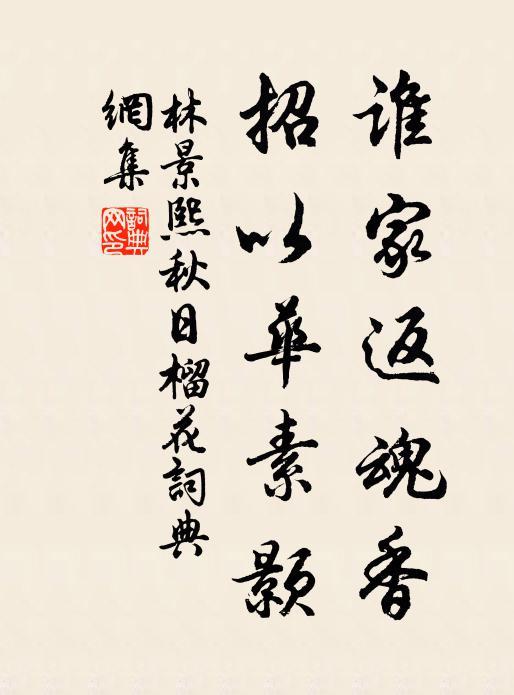 誰家返魂香
招以華素顥
林景熙秋日榴花詞典
網集
詞典
网印